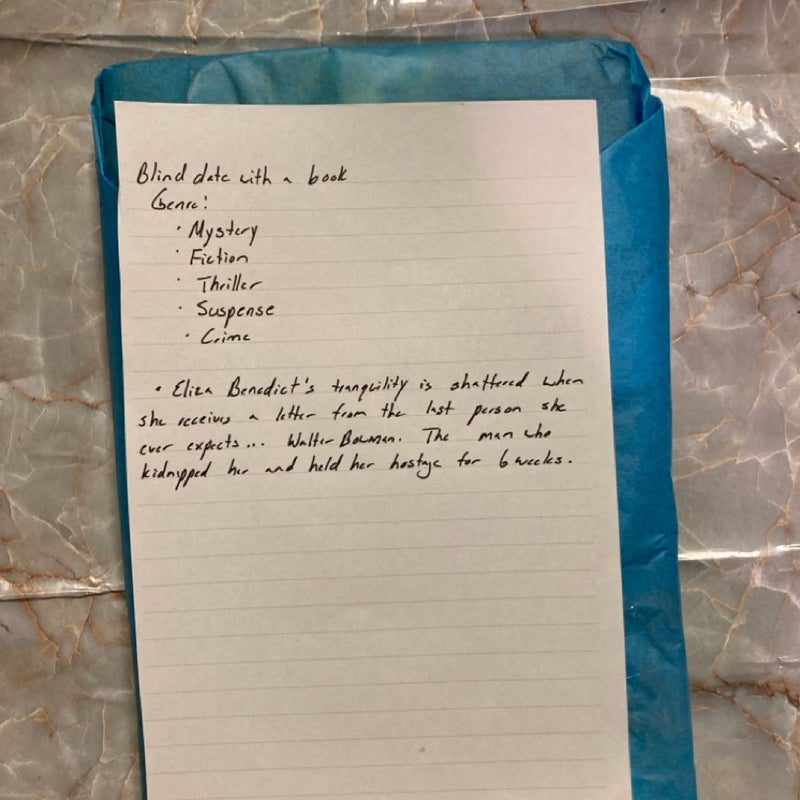 Blind date with a book
Genre:
· Mystery
· Fiction
· Thriller
· Suspense
· Crime
· Eliza Benedict's tranquility is shattered when
she receives a letter from the last person she
ever expects... Walter Bowman. The man who
kidnapped her and held her hostage for 6 weeks.